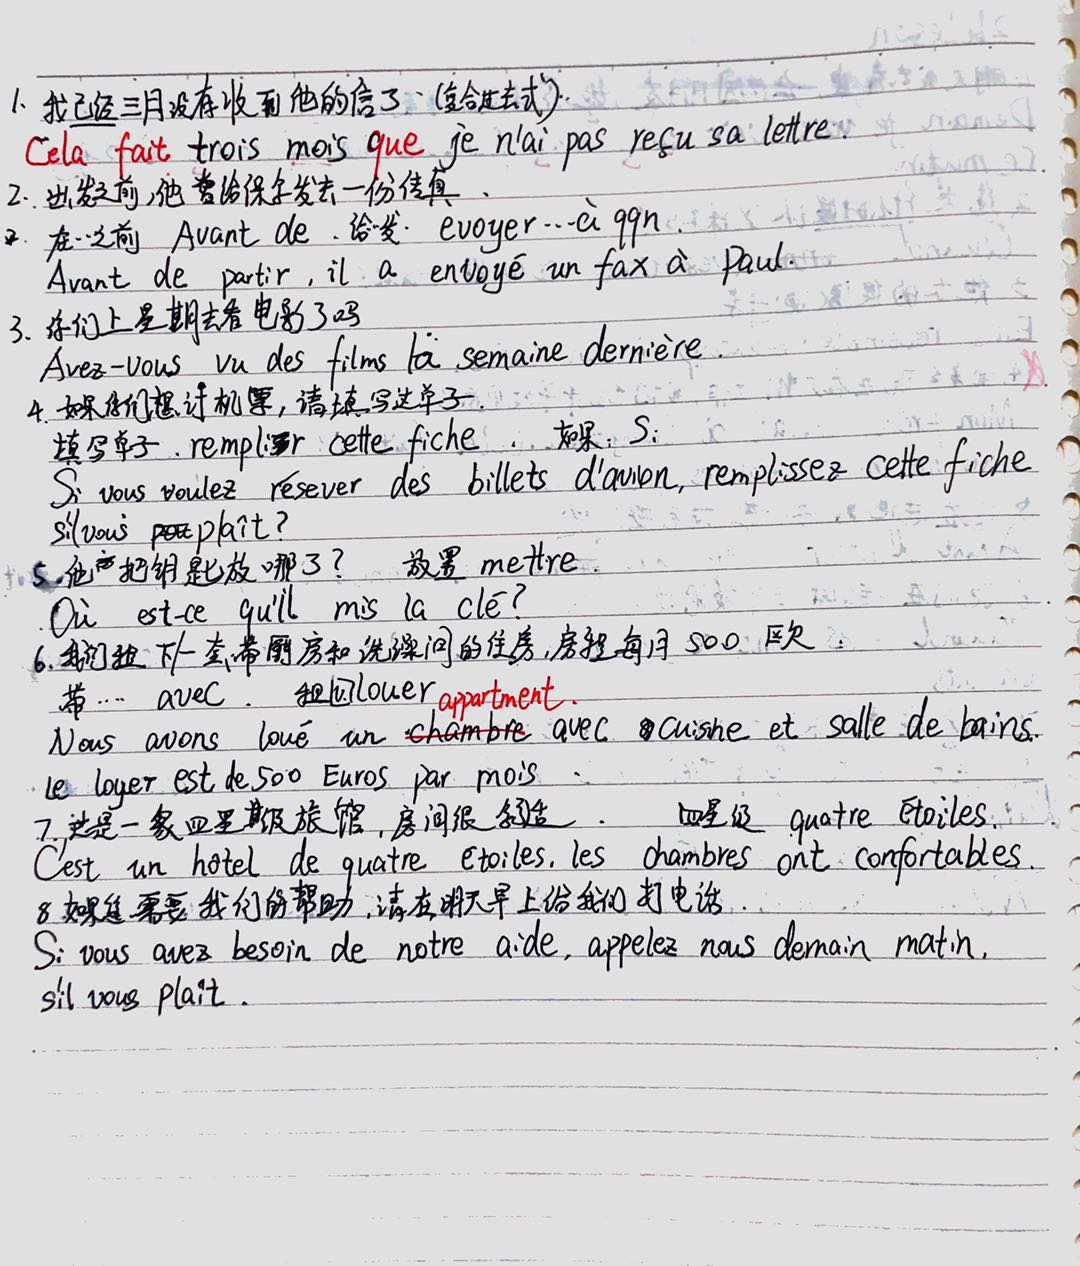 1. 我已经三月没有收到他的信了.(复合过去式).
Cela fait trois mois que je n'ai pas reçu sa lettre.
2. 出发之前,他曾给保尔发去一份传真.
在…之前 Avant de . 给…发. evoyer…à qqn.
Avant de partir, il a envoyé un fax à Paul.
3. 你们上星期去看电影了吗
Avez-vous vu des films la semaine dernière.
4. 如果你们想订机票,请填写这单子.
填写单子. remplir cette fiche. 如果: Si
Si vous voulez resever des billets d'avion, remplissez cette fiche
s'il vous plaît?
5. 他把钥匙放哪了? 放置 mettre.
Où est-ce qu'il mis la clé?
6. 我们租下一套带厨房和洗澡间的住房,房租每月500欧
带… avec. 租 louer appartment.
Nous avons loué un chambre avec cuisine et salle de bains.
Le loyer est de 500 Euros par mois.
7. 这是一家四星级旅馆,房间很舒适. 四星级 quatre Etoiles.
C'est un hotel de quatre Etoiles. les chambres ont confortables.
8 如果您需要我们的帮助,请在明天早上给我们打电话.
Si vous avez besoin de notre aide, appelez nous demain matin.
s'il vous plaît.